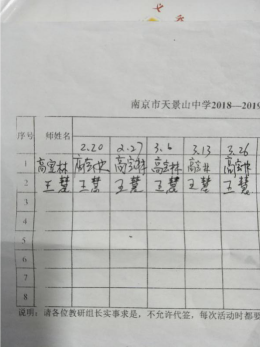 南京市天景山中学2018—2019
序号 师姓名 2.20 2.27 3.6 3.13 3.26
1 高宝林 高宝林 高宝林 高宝林
2 王慧 王慧 王慧 王慧 王慧 王慧
3
4
5
6
7
8
说明：请各位教研组长实事求是，不允许代签，每次活动时都要